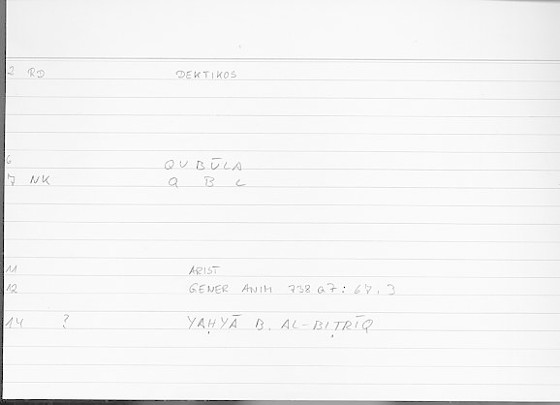 2 RD DEKTIKOS
6 QUBŪLA
7 NK Q B L
11 ARIST
12 GENER ANIM 738 a7 :
14 ? YAḤYĀ B. AL-BIṬRĪQ